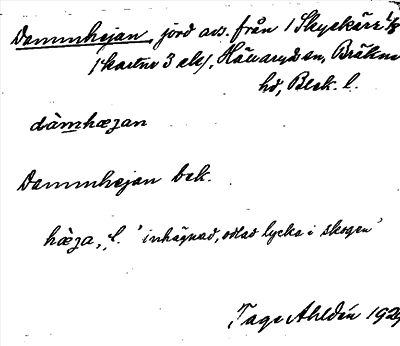 Dammhejan, jord avs. från 1 Skyekärr 1/8
1 kartnr 3 ek/. Hällaryds sn, Bräkne
hd, Blek. l.
dàmhæjan
Dammhejan bek.
hæja, f. 'inhägnad, odlad lycka i skogen'
Tage Ahldén 192